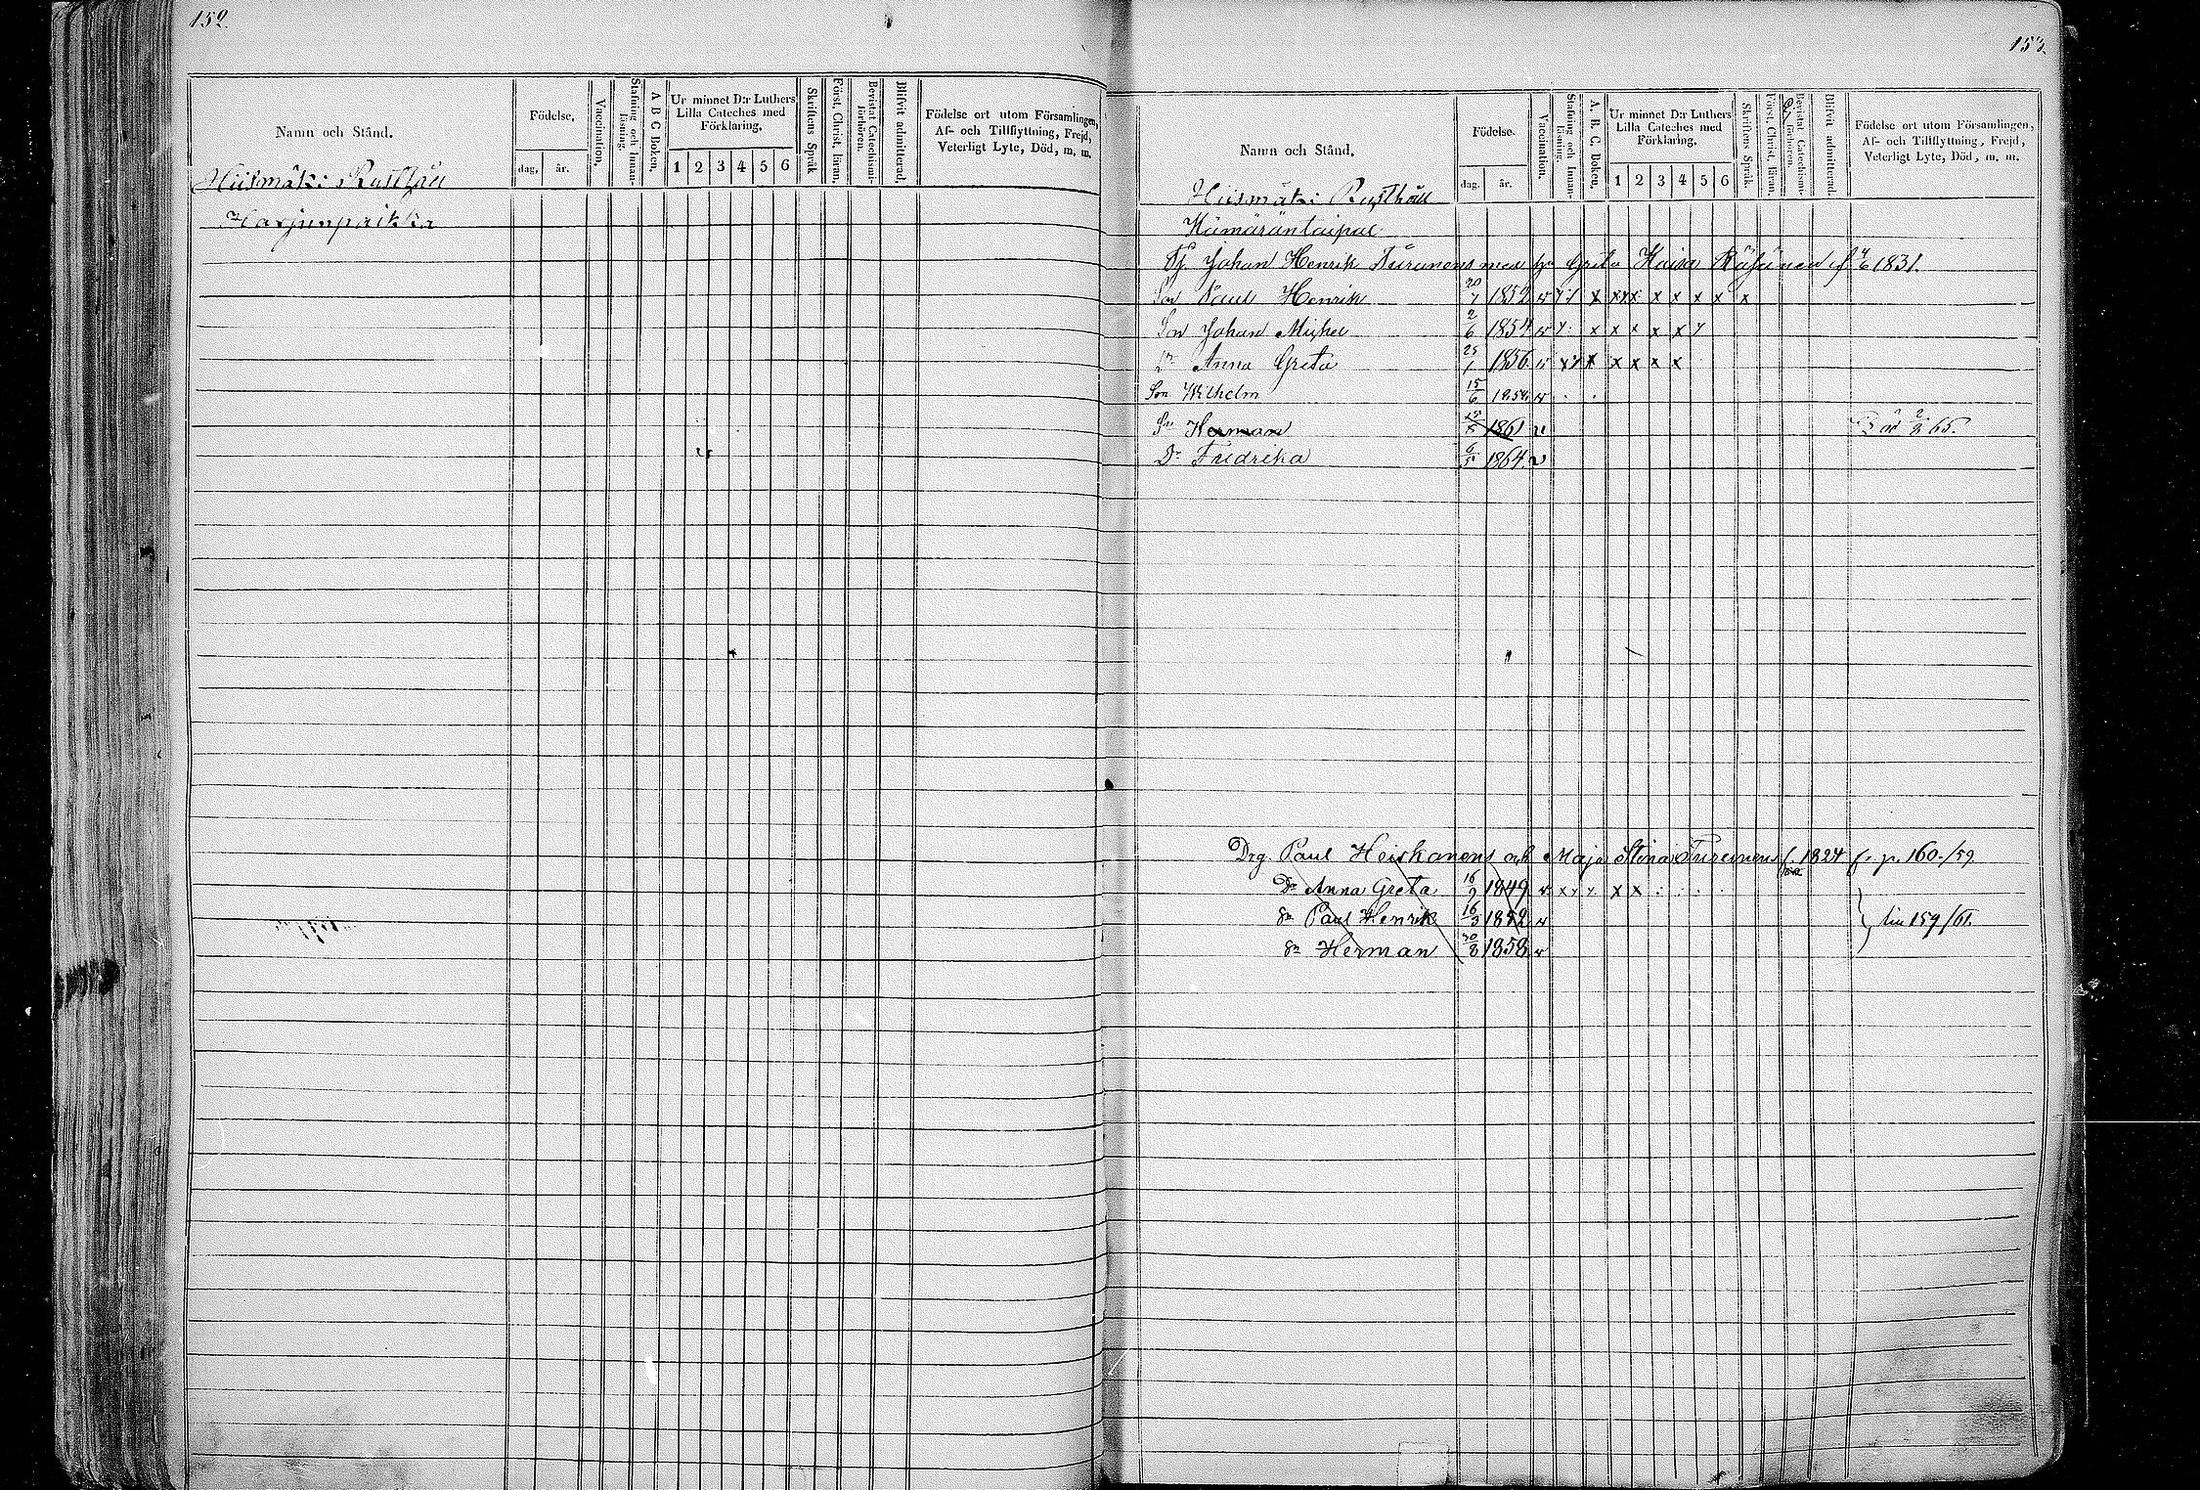 152.
Namn och Stånd.
Födelse.
dag.
år.
Vaccination.
Stafning och Innanläsning.
A B C Boken.
Ur minnet D:r Luthers Lilla Cateches med Förklaring.
1 2 3 4 5 6
Skriftens Språk
Först. Christ. läran.
Bevistat Catechismi-förhören.
Blifvit admitterad.
Födelse ort utom Församlingen, Af- och Tillflyttning, Frejd, Veterligt Lyte, Död, m. m.
Hiismäki Rusthåll
Harjunpaikka
153.
Namn och Stånd.
Födelse.
dag.
år.
Vaccination.
Stafning och Innanläsning.
A. B. C. Boken.
Ur minnet D:r Luthers Lilla Cateches med Förklaring.
1 2 3 4 5 6
Skriftens Språk.
Först. Christ. läran.
Bevistat Catechismi-förhören.
Blifvit admitterad.
Födelse ort utom Församlingen, Af- och Tillflyttning, Frejd, Veterligt Lyte, Död, m. m.
Hiismäki Rusthåll
Hämäräntaipal
Johan Henrik Turunens med Greta Kaisa Räsänen f. 1831.
Son Paul Henrik 20/7 1852 v x x x x x x x x
Son Johan Michel 2/6 1854 v x x x x x x
Dr Anna Greta 25/1 1856 v x x x x x x x
Son Wilhelm 15/6 1858 v
Sn Herman 1861 v Död 2/2 65.
Dr Fredrika 6/5 1864 v
Drg. Paul Heiskanens och Maja Stina Turunens f. 1824 f. p. 160/59
Dr Anna Greta 16/9 1849 v x x x x x
Sn Paul Henrik 16/3 1852 v lin 159/61.
Sn Herman 30/8 1858 v